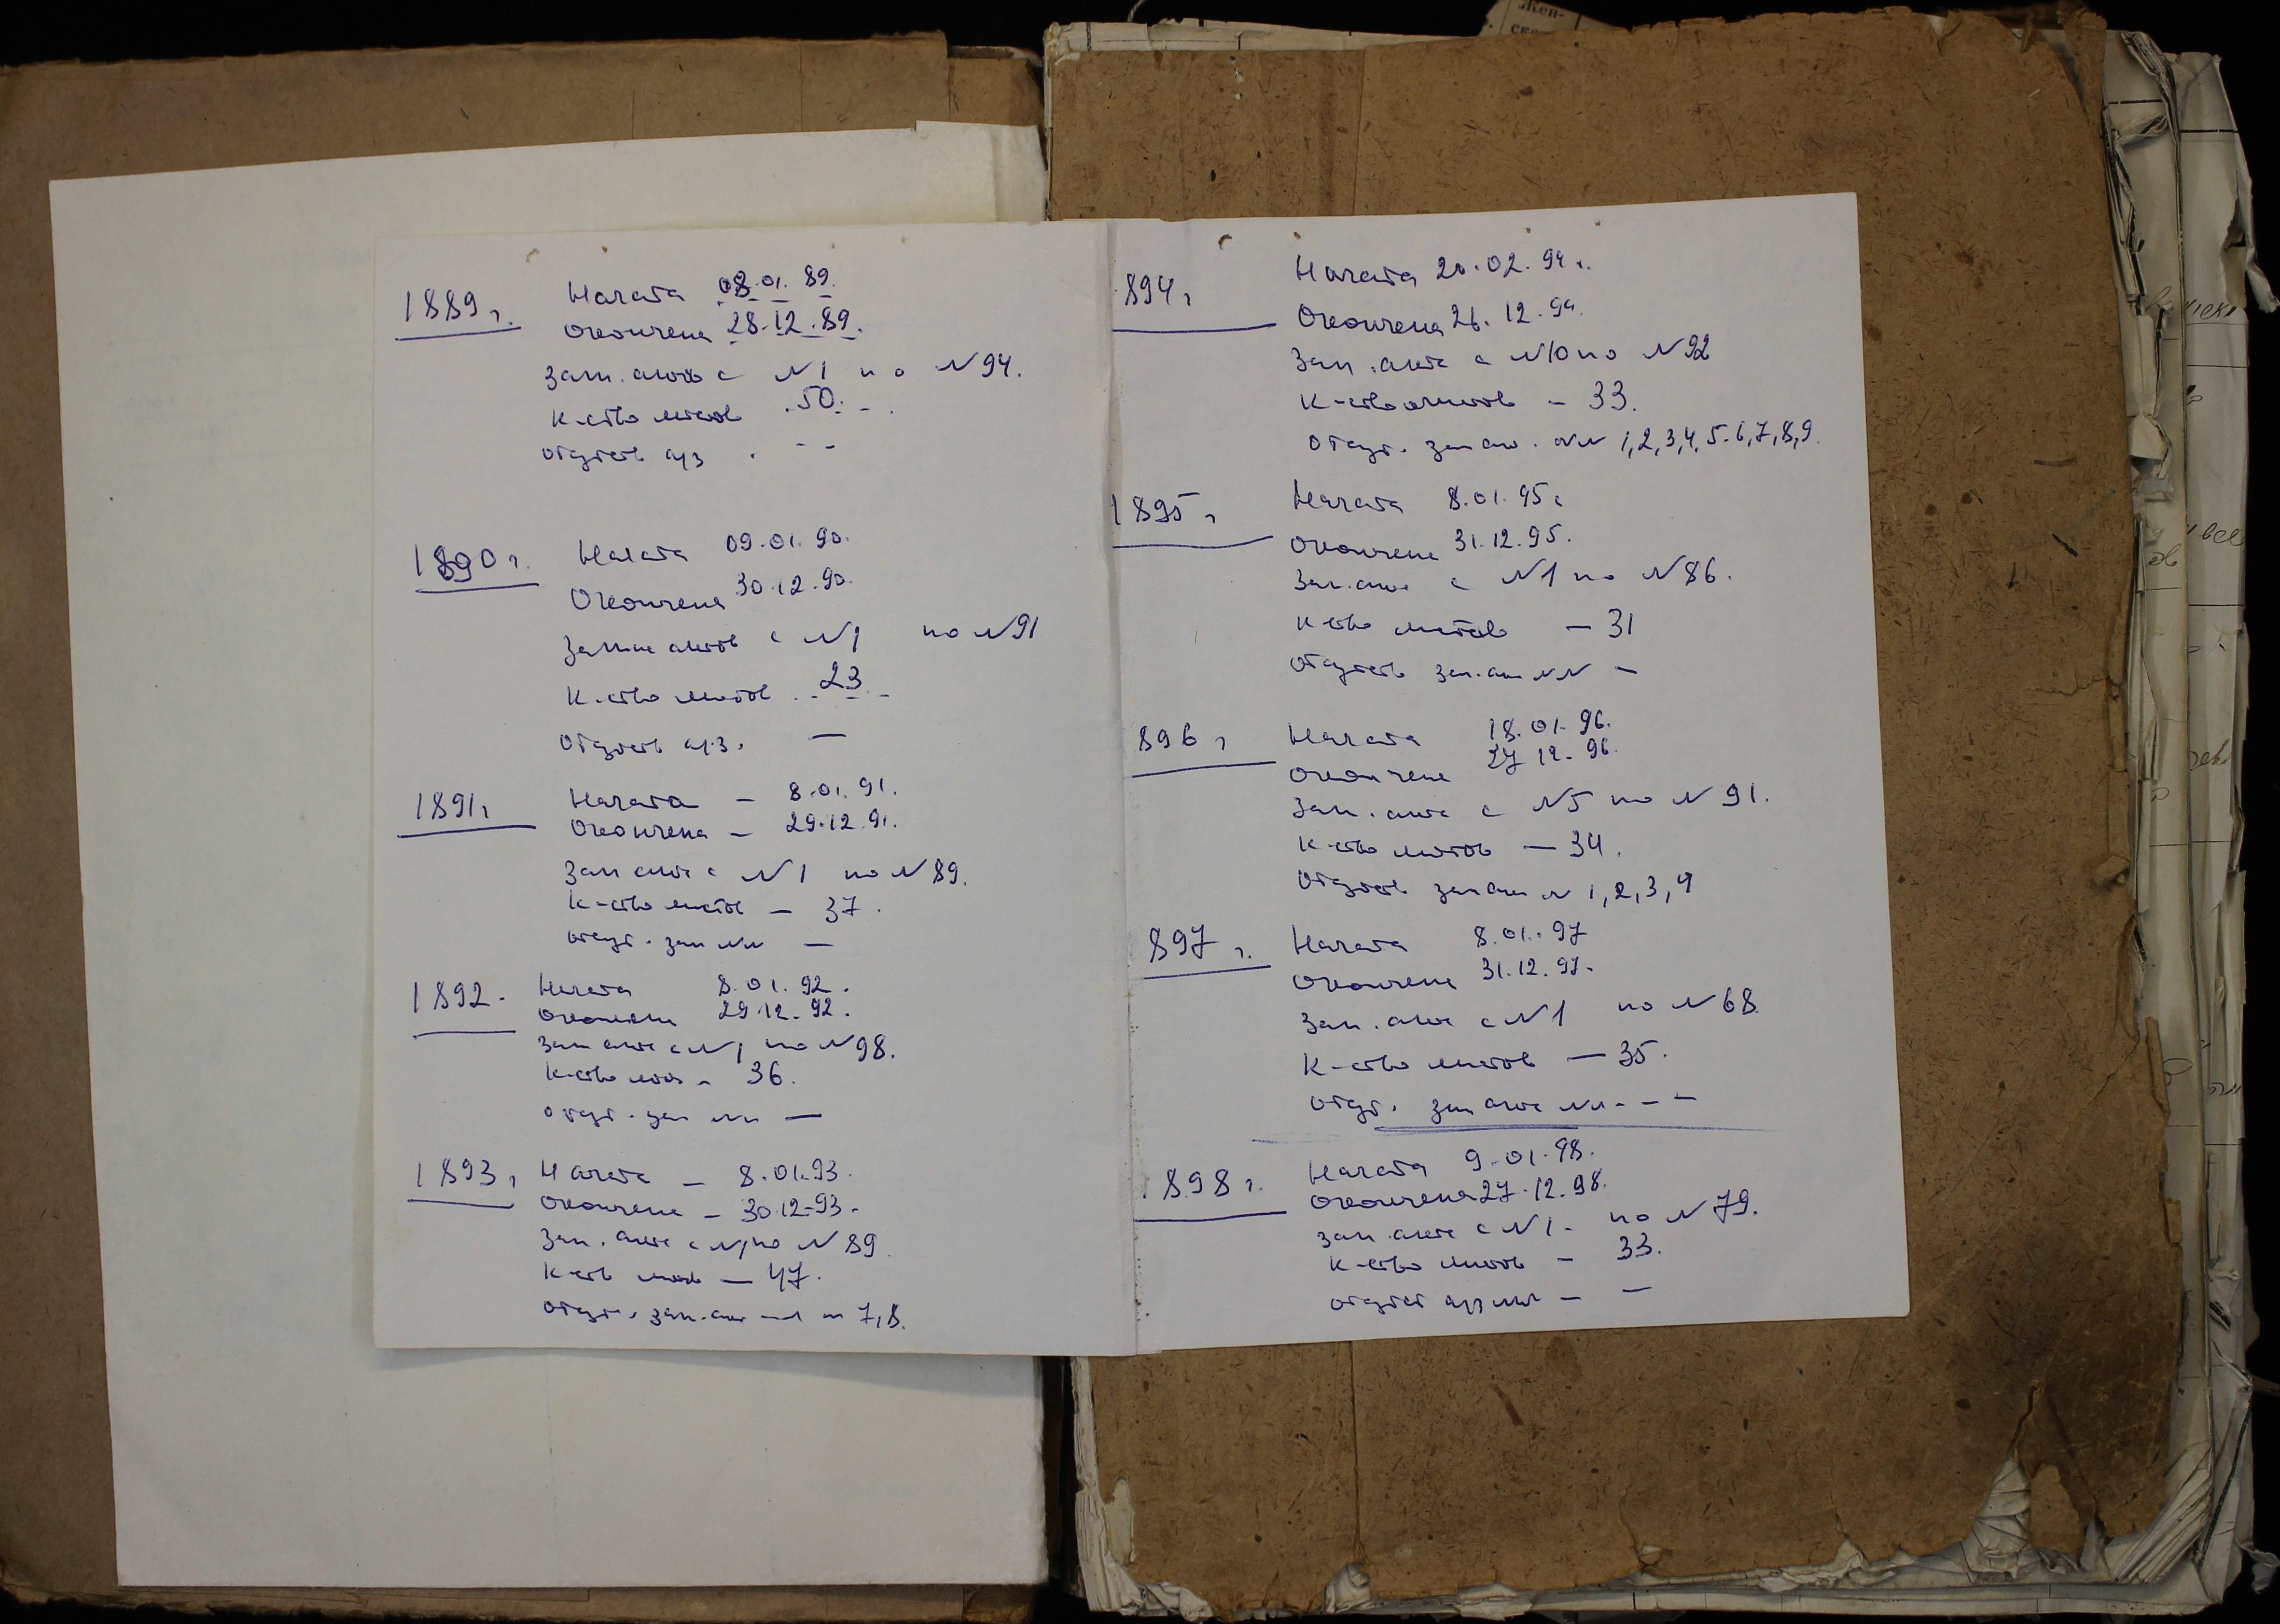 1889 г.
Начата 08.01.89.
Окончена 28.12.89.
Зап. актов с N1 по N94.
К-ство листов 50.
отсутств а/з. - -
1890 г.
Начата 09.01.90.
Окончена 30.12.90.
Записи актов с N1 по N91
К-ство листов 23
Отсутств а/з. —
1891 г
Начата — 8.01.91.
Окончена — 29.12.91.
Зап акта с N1 по N89.
К-ство листов — 37.
отсут. зап NN —
1892.
Начата 8.01.92.
Окончена 29.12.92.
Зап акта с N1 по N98.
К-ство лист - 36.
отсут. зап NN —
1893 г
Начата — 8.01.93.
Окончена — 30.12.93.
Зап. акта с N1 по N89
К-ств лист — 47.
отсут. зап. акт 7,8.
894 г
Начата 20.02.94 г.
Окончена 26.12.94.
Зап. акта с N10 по N92
К-ство листов - 33.
Отсут. зап ак. NN 1,2,3,4,5,6,7,8,9
1895 г
Начата 8.01.95 г
Окончена 31.12.95.
Зап. акта с N1 по N86.
К-ство листов — 31
отсутств зап. акт NN —
896 г
Начата 18.01.96.
Окончена 27.12.96.
Зап. акта с N5 по N91.
К-ство листов — 34.
Отсутств зап акт N 1,2,3,4
897 г.
Начата 8.01.97
Окончена 31.12.97.
Зап. акта с N1 по N68
К-ство листов — 35.
отсут. зап акта NN - - -
1898 г.
Начата 9.01.98.
Окончена 27.12.98.
зап. акта с N1 - по N79.
К-ство листов — 33.
отсутст а/з NN — —